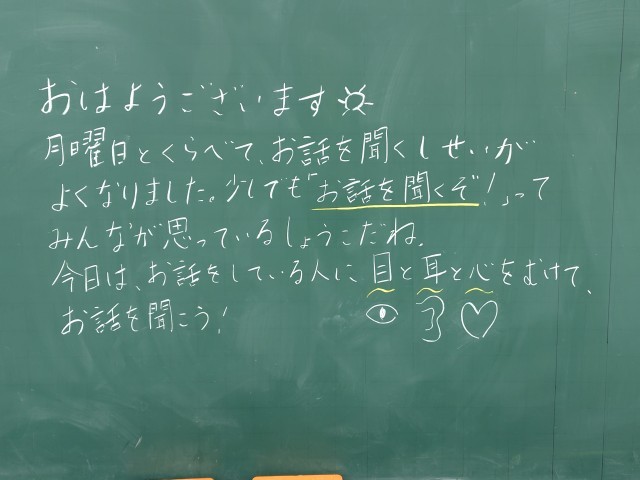 おはようございます
月曜日とくらべて、お話を聞くしせいが
よくなりました。少しでも「お話を聞くぞ！」って
みんなが思っているしょうこだね。
今日は、お話をしている人に、目と耳と心をむけて、
お話を聞こう！